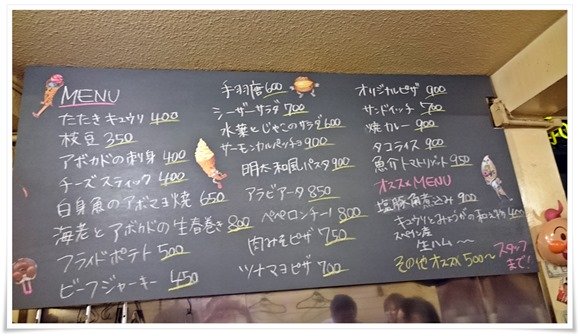 MENU
たたきキュウリ 400
枝豆 350
アボカドの刺身 400
チーズスティック 400
白身魚のアボマヨ焼 650
海老とアボカドの生春巻き 800
フライドポテト 500
ビーフジャーキー 450
手羽唐 600
シーザーサラダ 700
水菜とじゃこのサラダ 600
サーモンカルパッチョ 900
明太和風パスタ 900
アラビアータ 850
ペペロンチーノ 800
肉みそピザ 750
ツナマヨピザ 700
オリジナルピザ 900
サンドイッチ 700
焼カレー 900
タコライス 900
魚介トマトリゾット 950
オススメMENU
塩豚角煮込み 900
キュウリとみょうがの和え物 400
スペイン産
生ハム 〜
その他オススメ 500〜
スタッフ
まで!